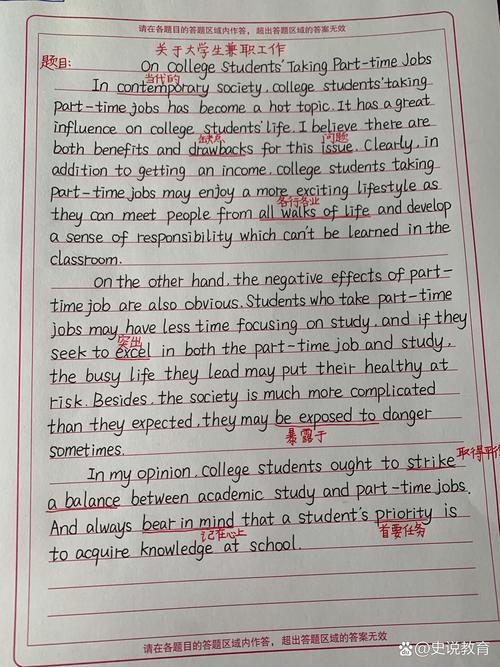 请在各题目的答题区域内作答，超出答题区域的答案无效
关于大学生兼职工作
题目: On College Students' Taking Part-time Jobs
当代的
In contemporary society, college students' taking
part-time jobs has become a hot topic. It has a great
influence on college students' life. I believe there are
缺点 问题
both benefits and drawbacks for this issue. Clearly, in
addition to getting an income, college students taking
part-time jobs may enjoy a more exciting lifestyle as
各行各业
they can meet people from all walks of life and develop
a sense of responsibility which can't be learned in the
classroom.
On the other hand, the negative effects of part-
time job are also obvious. Students who take part-time
jobs may have less time focusing on study, and if they
突出
seek to excel in both the part-time job and study,
the busy life they lead may put their healthy at
risk. Besides, the society is much more complicated
than they expected, they may be exposed to danger
暴露于
sometimes.
In my opinion, college students ought to strike
取得平
a balance between academic study and part-time jobs.
And always bear in mind that a student's priority is
记在心上 首要任务
to acquire knowledge at school.
请在各题目的答题区域内作答，超出答题区域的答案无效
史说教育